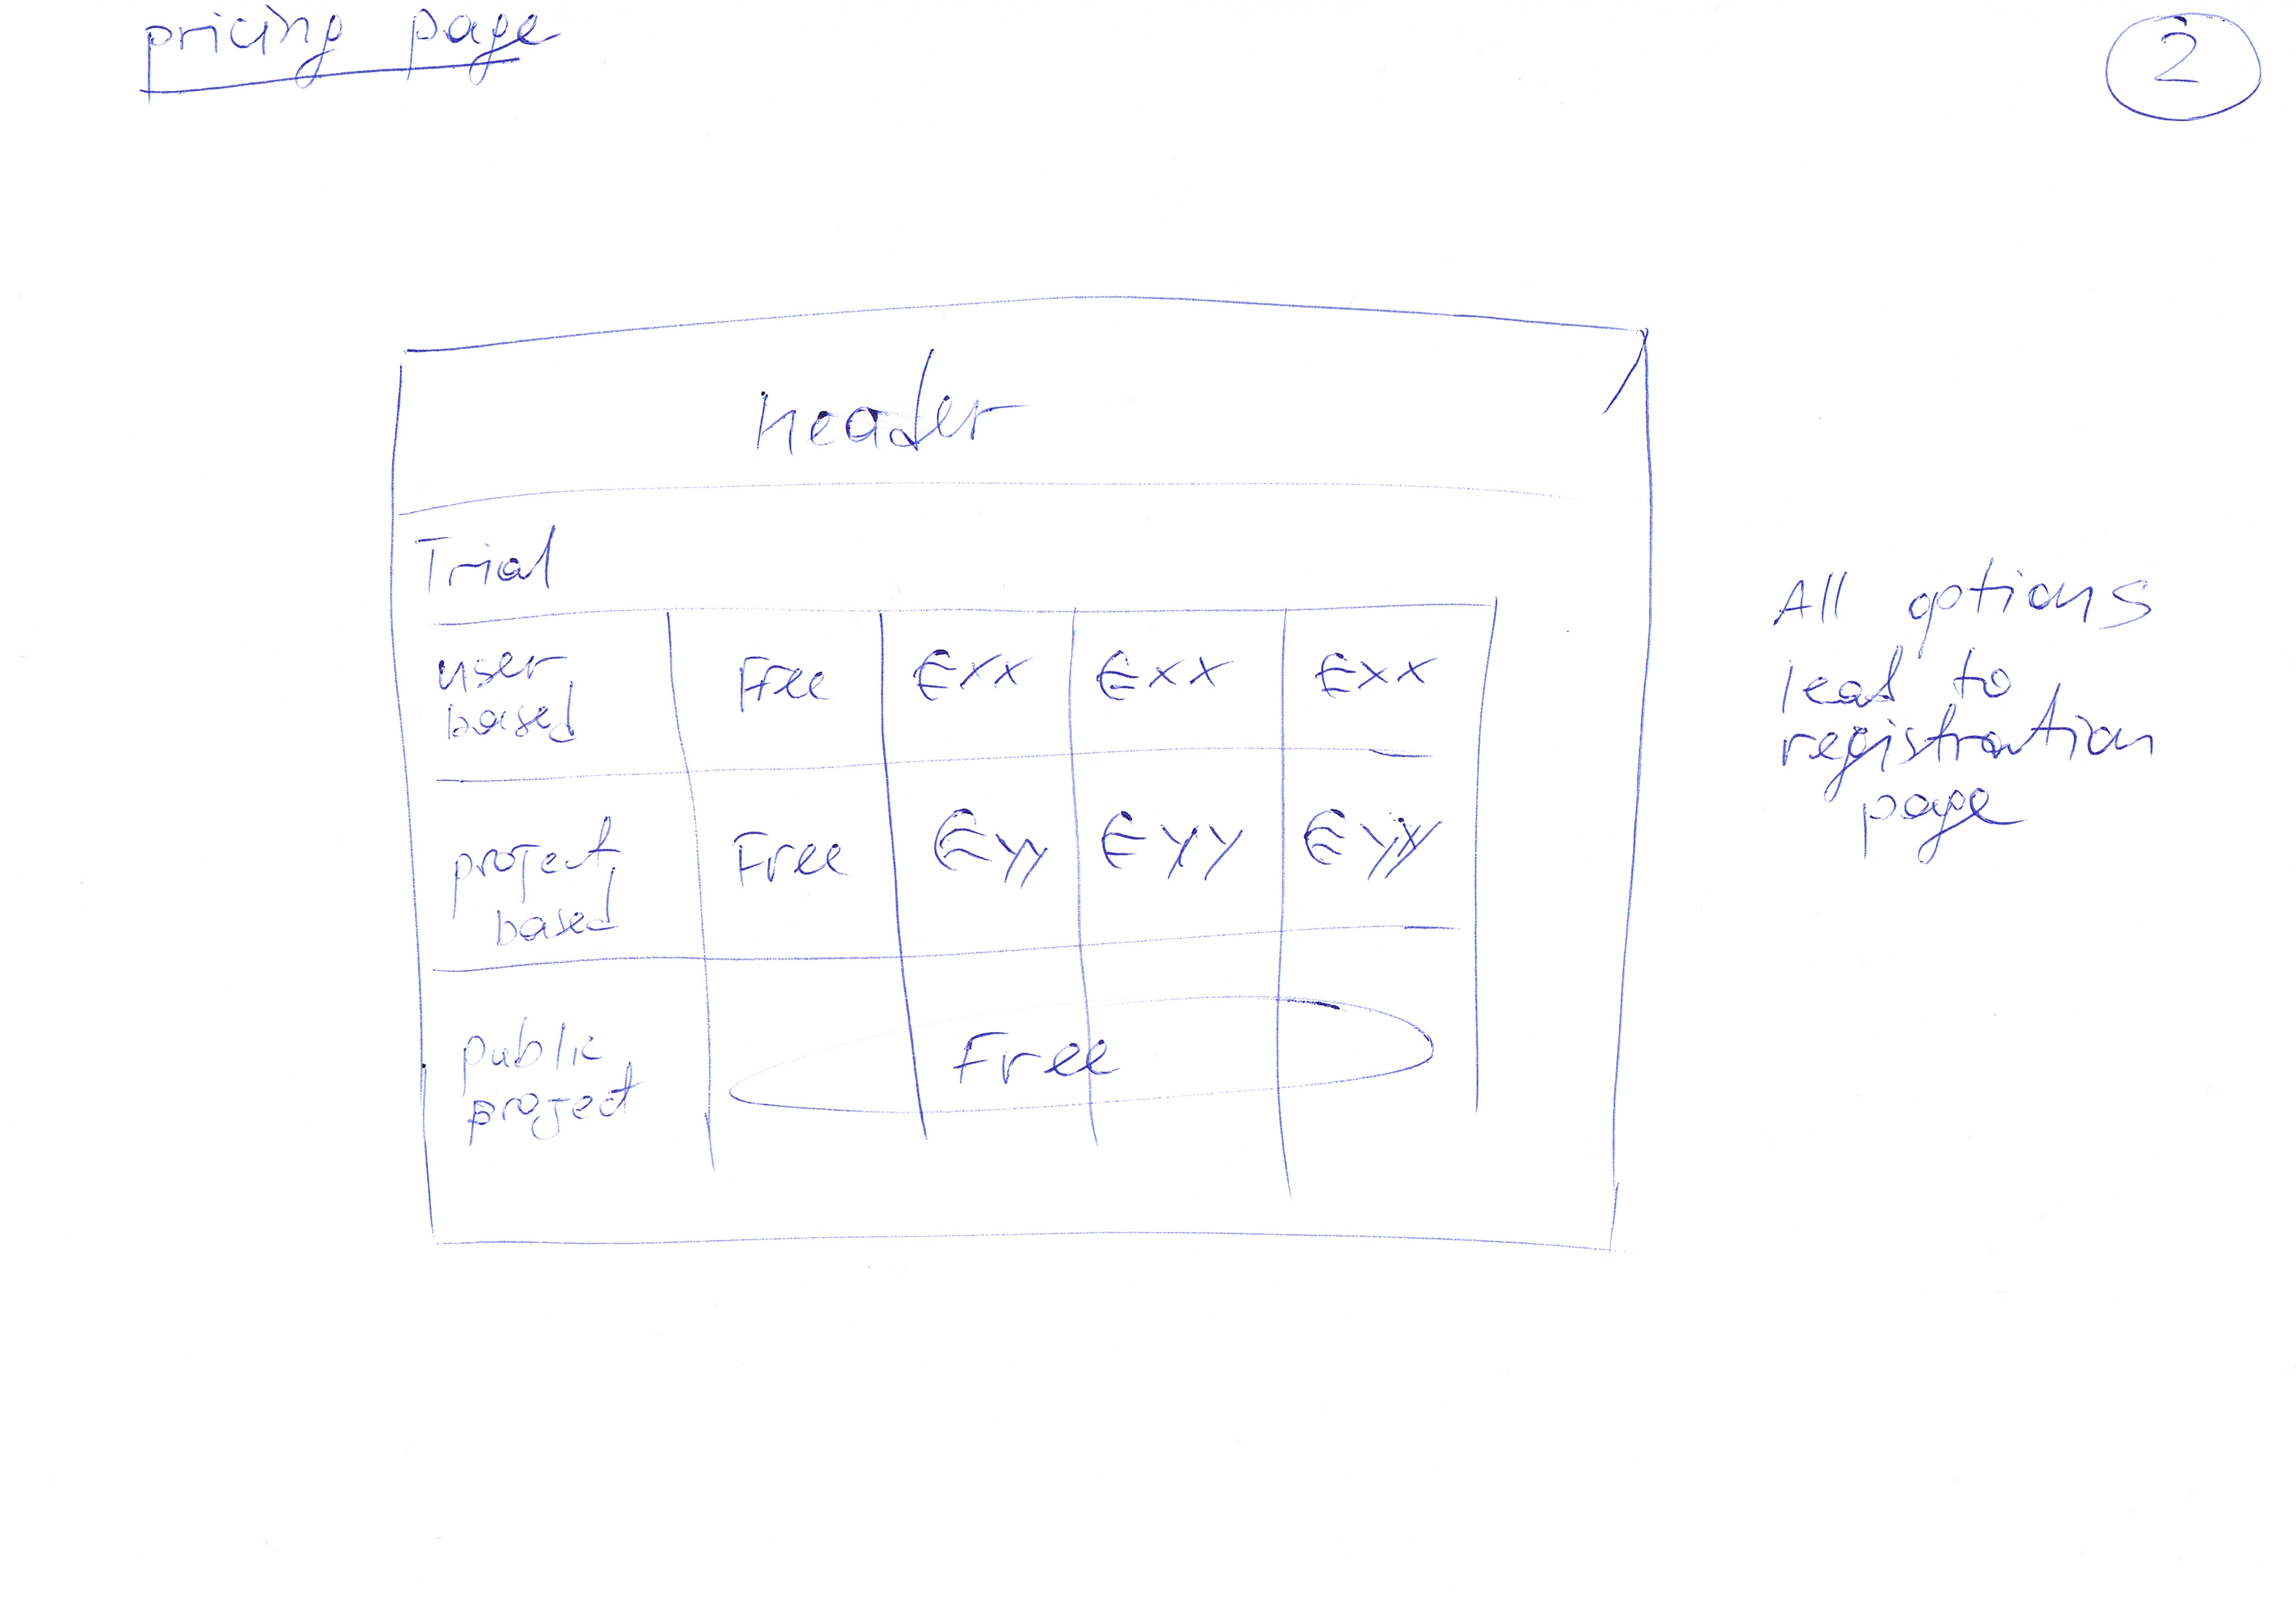 pricing page
2
header
Trial
user based
Free
€xx
€xx
€xx
project based
Free
€yy
€yy
€yy
public project
Free
All options
lead to
registration
page